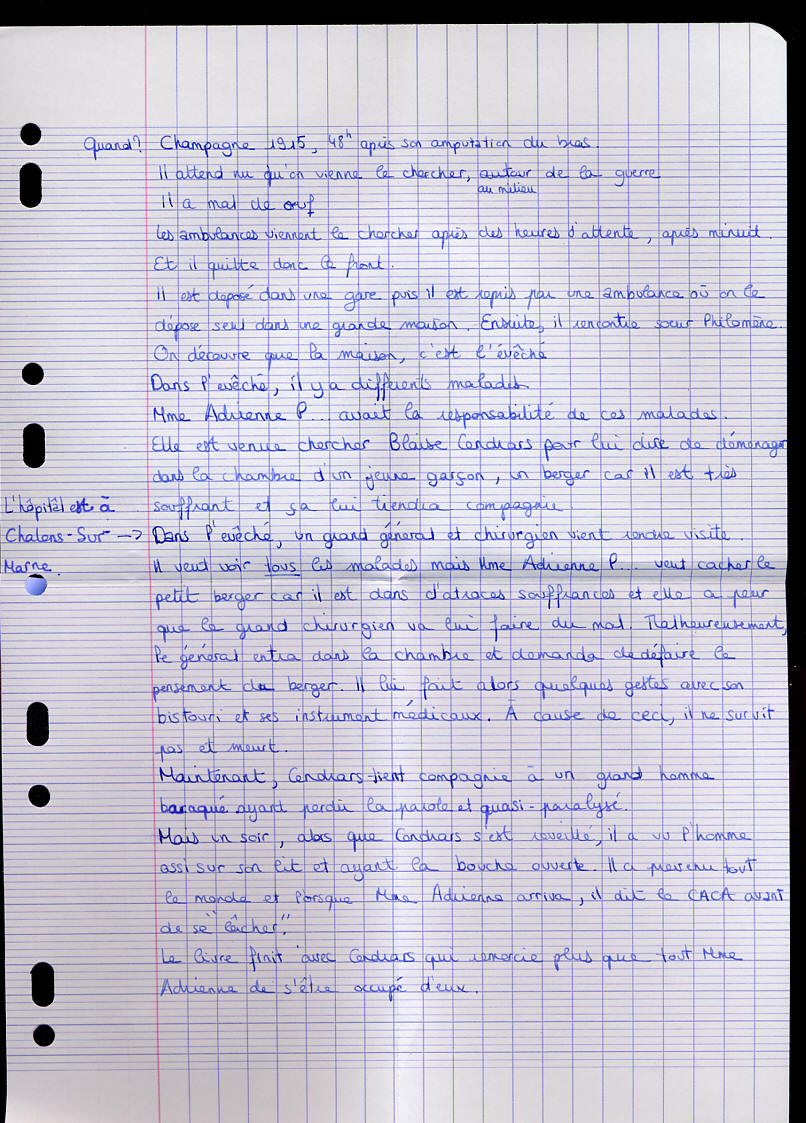 Quand? Champagne 1915, 48h après son amputation du bras.
Il attend nu qu'on vienne le chercher, autour de la guerre
au milieu
Il a mal de ouf
Les ambulances viennent le chercher après des heures d'attente, après minuit.
Et il quitte donc le front.
Il est déposé dans une gare puis il est repris par une ambulance où on le
dépose seul dans une grande maison. Ensuite, il rencontre soeur Philomène.
On découvre que la maison, c'est l'évêché
Dans l'evêché, il y a différents malades
Mme Adrienne P... avait la responsabilité de ces malades.
Elle est venue chercher Blaise Cendrars pour lui dire de déménager
dans la chambre d'un jeune garçon, un berger car il est très
souffrant et sa lui tiendra compagnie.
L'hôpitâl est à
Chalons-Sur →
Marne.
Dans l'evêché, un grand général et chirurgien vient rendre visite.
Il veut voir tous les malades mais Mme Adrienne P... veut cacher le
petit berger car il est dans d'atroces souffrances et elle a peur
que le grand chirurgien va lui faire du mal. Malheureusement,
le général entra dans la chambre et demanda de défaire le
pensement du berger. Il lui fait alors quelques gestes avec son
bistouri et ses instrument médicaux. À cause de ceci, il ne survit
pas et meurt.
Maintenant, Cendrars tient compagnie à un grand homme
baraqué ayant perdu la parole et quasi-paralysé.
Mais un soir, alors que Cendrars s'est réveillé, il a vu l'homme
assi sur son lit et ayant la bouche ouverte. Il a prevenu tout
le monde et lorsque Mme Adrienne arriva, il dit le CACA avant
de se "lâcher".
Le livre finit avec Cendrars qui remercie plus que tout Mme
Adrienne de s'être occupé d'eux.